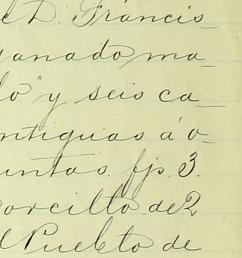 el D. Francis_
ganado ma_
lo" y seis ca_
ntiguas á o_
untas. fp. 3.
orcillo de 2
l Pueblo de